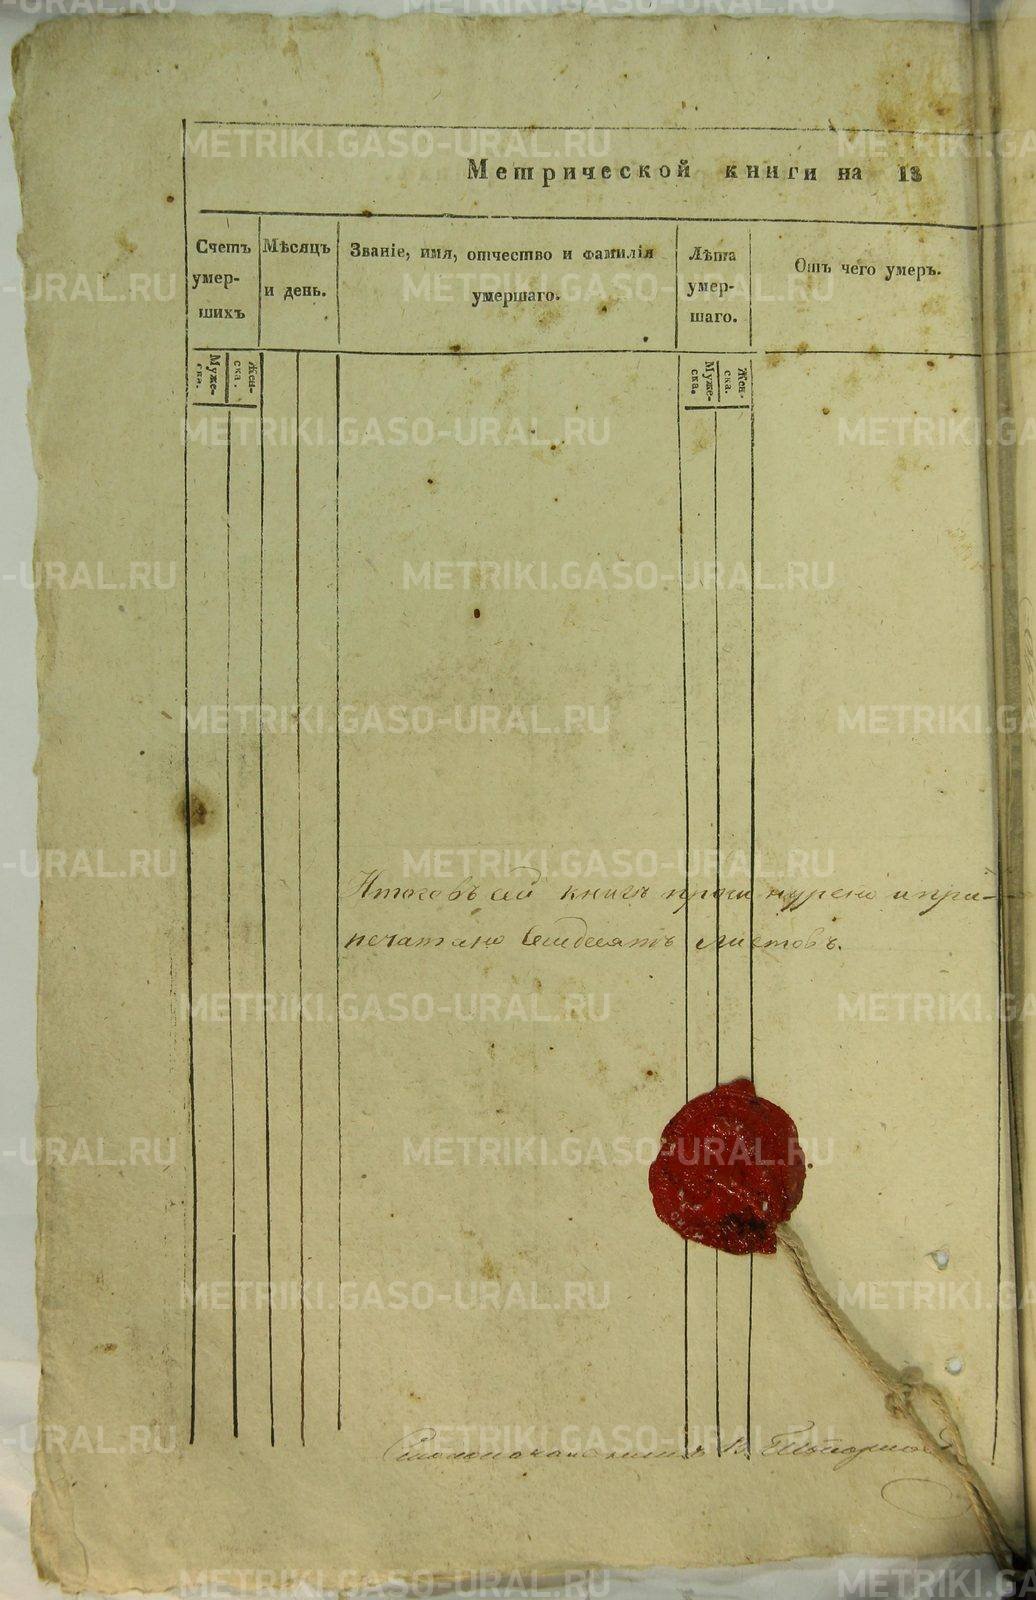 Метрической книги на 18
Счетъ умер- шихъ
Мѣсяцъ и день.
Званіе, имя, отчество и фамилія умершаго.
Лѣта умер- шаго.
Отъ чего умеръ.
Муже- ска.
Жен- ска.
Муже- ска.
Жен- ска.
Итого въ сей книгѣ прошнурено и при-
печатано листовъ.
Столоначальникъ В.
METRIKI.GASO-URAL.RU